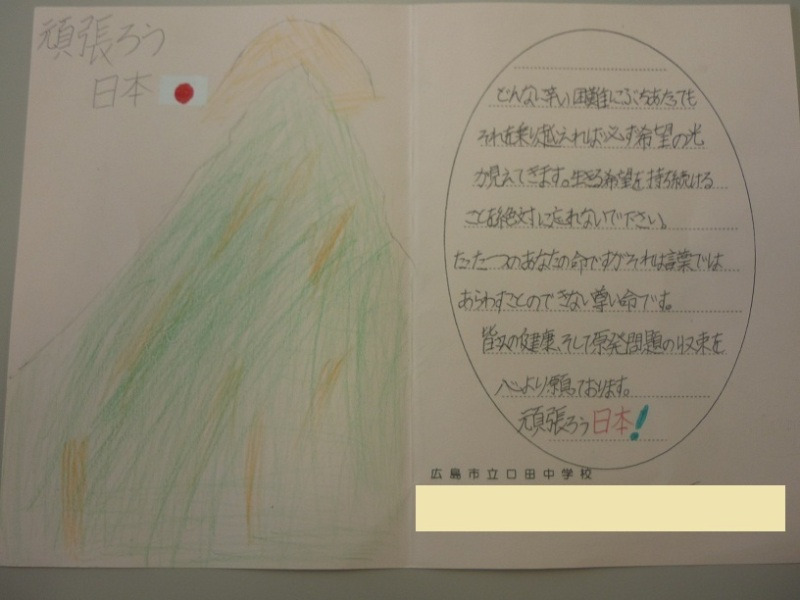 頑張ろう
日本
どんなに辛い困難にぶちあたっても
それを乗り越えれば必ず希望の光
が見えてきます。生きる希望を持ち続ける
ことを絶対に忘れないで下さい。
たった一つのあなたの命ですがそれは言葉では
あらわすことのできない尊い命です。
皆々の健康、そして原発問題の収束を
心より願っております。
頑張ろう日本!
広島市立口田中学校